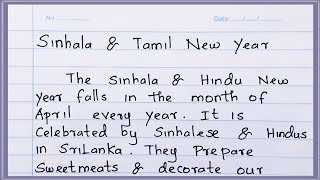 No
Date:
Sinhala & Tamil New Year
The Sinhala & Hindu New
year falls in the month of
April every year. It is
Celebrated by Sinhalese & Hindus
in SriLanka. They Prepare
Sweetmeats & decorate our